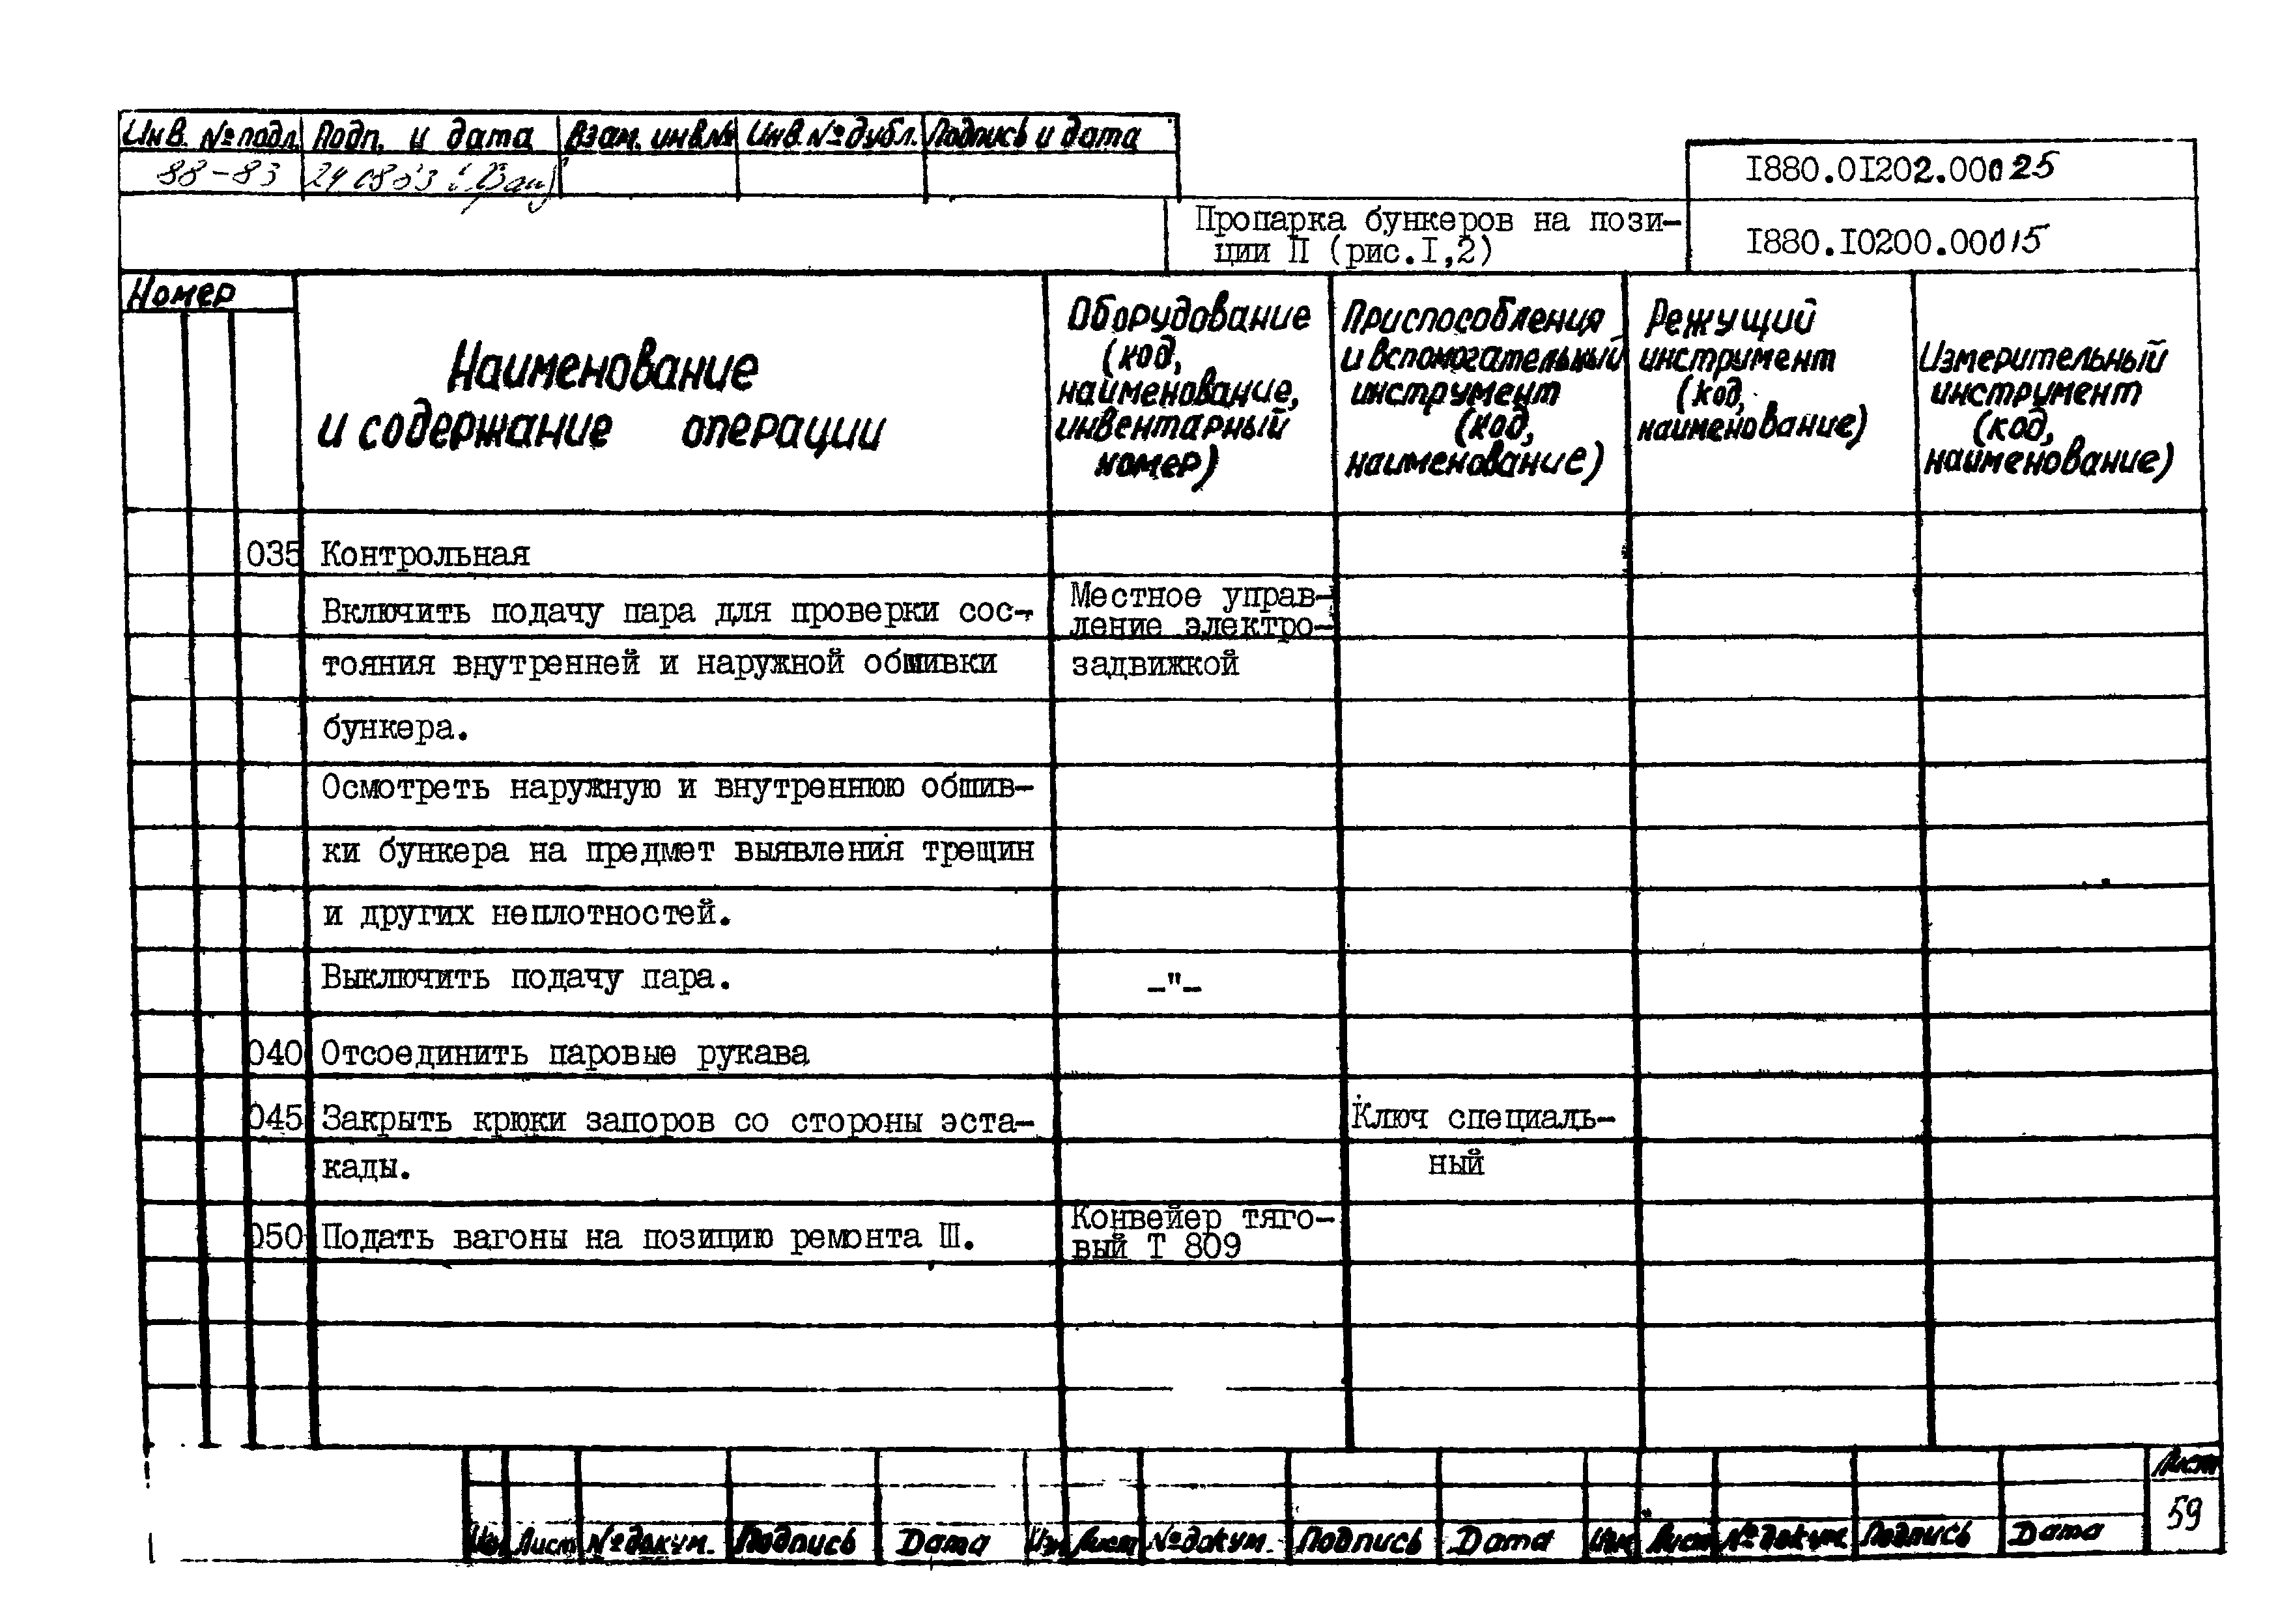 Инв. № подл. Подп. и дата Взам. инв.№ Инв. № дубл. Подпись и дата
88-83
I880.0I202.00025
Пропарка бункеров на пози-
ции П (рис.I,2)
I880.I0200.00015
Номер
Наименование
и содержание операции
Оборудование
(код,
наименование,
инвентарный
номер)
Приспособления
и вспомогательный
инструмент
(код,
наименование)
Режущий
инструмент
(код,
наименование)
Измерительный
инструмент
(код,
наименование)
035 Контрольная
Включить подачу пара для проверки сос-
Местное управ-
ление электро-
тояния внутренней и наружной обшивки задвижкой
бункера.
Осмотреть наружную и внутреннюю обшив-
ки бункера на предмет выявления трещин
и других неплотностей.
Выключить подачу пара. -"-
040 Отсоединить паровые рукава
045 Закрыть крюки запоров со стороны эста- Ключ специаль-
кады. ный
050 Подать вагоны на позицию ремонта Ш.
Конвейер тяго-
вый Т 809
Лист
59
Изм Лист № докум. Подпись Дата Изм Лист № докум. Подпись Дата Изм Лист № докум. Подпись Дата